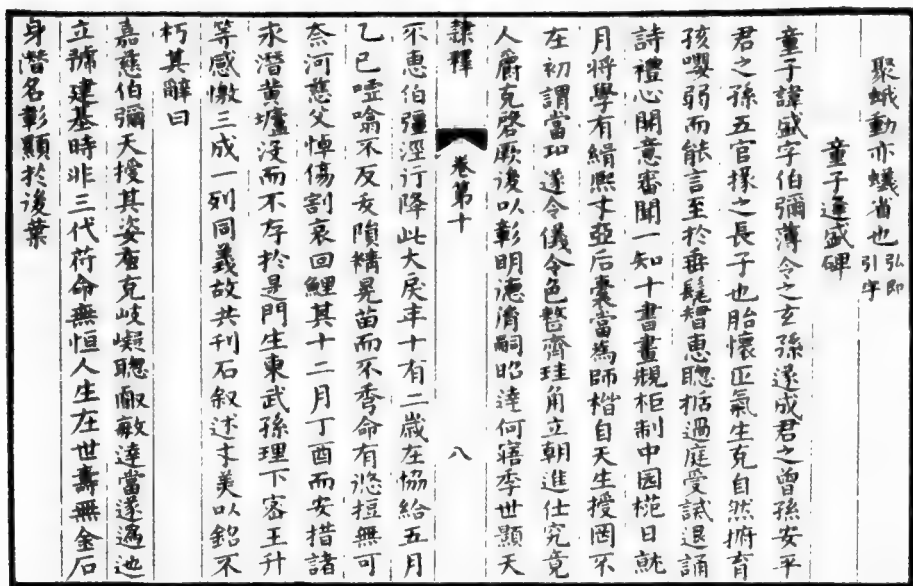 聚蛾動亦蟻省也弘即引字
童子逢盛碑
童子諱盛字伯彌薄令之玄孫遂成君之曾孫安平
君之孫五官掾之長子也胎懷正氣生克自然捬育
孩嬰弱而能言至於垂髦智惠聰哲過庭受誡退誦
詩禮心開意審聞一知十書畫規柜制中園椸日就
月將學有緝熙才亞后橐當為師楷自天生授罔不
在初謂當迎遂令儀令色整齊珪角立朝進仕究竟
人爵克啓厥後以彰明德湑嗣昭達何寤季世顥天
隸釋 卷第十 八
不惠伯彊涇行降此大戾年十有二歲在協給五月
乙巳噎噏不反夭隕精晃苗而不秀命有悠短無可
柰河慈父悼傷割哀回鯉其十二月丁酉而安措諸
永潛黃壚沒而不存於是門生東武孫理下密王升
等感慟三成一列同義故共刊石叙述才美以銘不
朽其辭曰
嘉慈伯彌天授其姿蚕克岐嶷聰叡敏達當遂過迆
立號建基時非三代苻命無恒人生在世壽無金石
身潛名彰顯於後葉